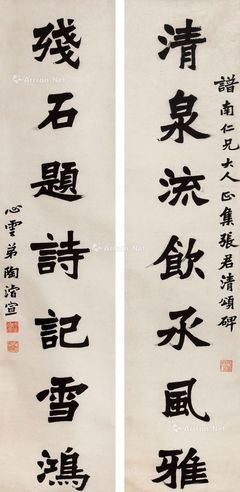 清泉流飲承風雅
譜南仁兄大人正集張君清頌碑
殘石題詩記雪鴻
心雲弟陶濬宣
Artron.Net